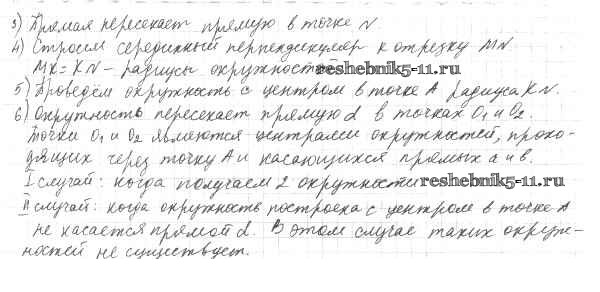 3) Прямая пересекает прямую в точке N.
4) Строим серединный перпендикуляр к отрезку MN
MK = KN – радиусы окружностей
reshebnik5-11.ru
5) Проведём окружность с центром в точке A радиуса KN.
6) Окружность пересекает прямую d в точках O₁ и O₂.
Точки O₁ и O₂ являются центрами окружностей, прохо-
дящих через точку A и касающихся прямых a и b.
I случай: когда получаем 2 окружности
reshebnik5-11.ru
II случай: когда окружность построена с центром в точке A
не касается прямой d. В этом случае таких окруж-
ностей не существует.